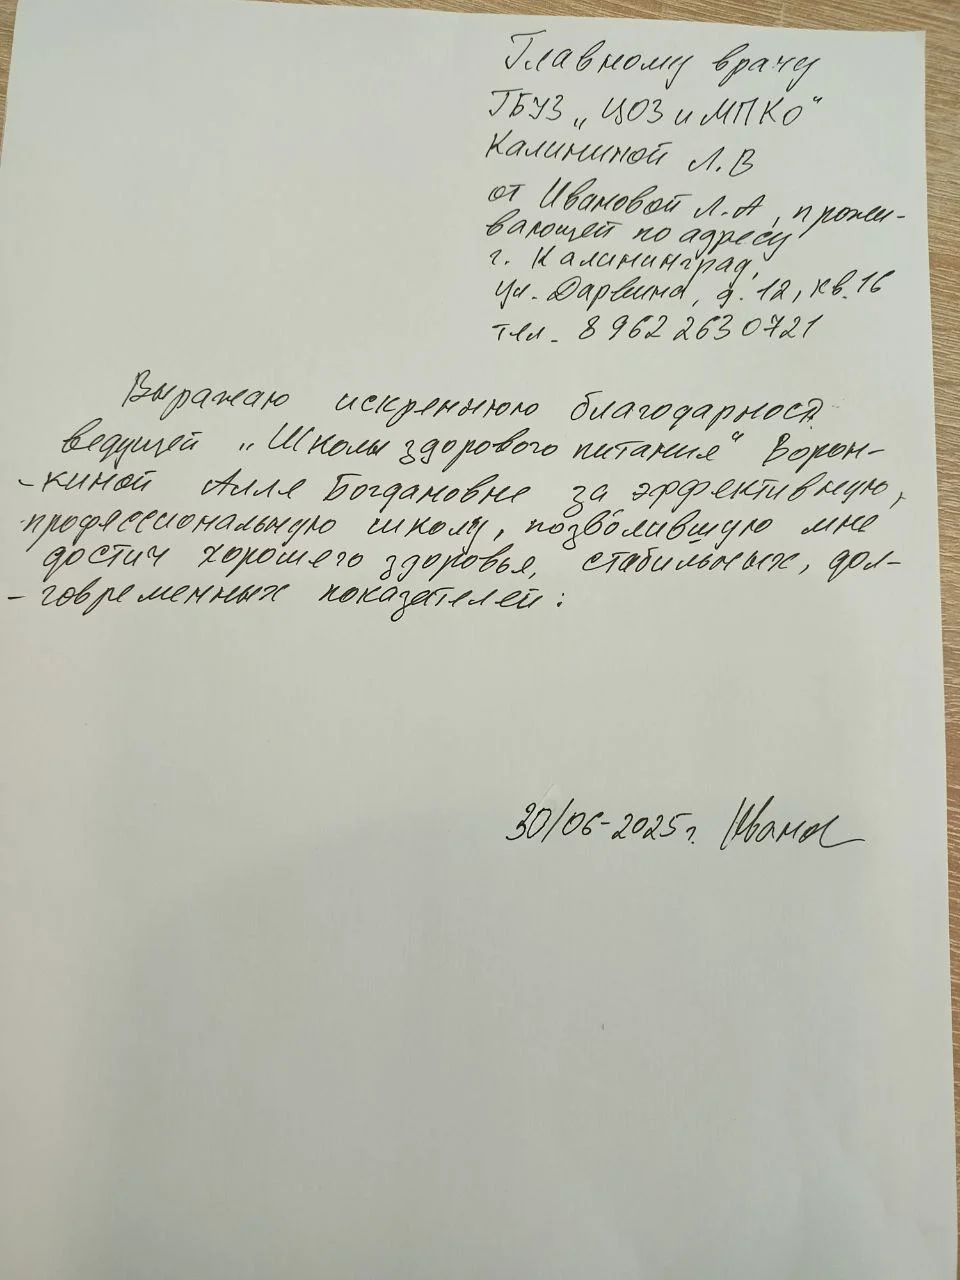 Главному врачу
ГБУЗ „ЦОЗ и МПКО"
Калининой Л.В
от Ивановой Л.А, прожи-
вающей по адресу
г. Калининград,
ул. Дарвина, д. 12, кв. 16
тел. 8 962 263 0721
Выражаю искреннюю благодарность
ведущей „Школы здорового питания" Ворон-
-киной Алле Богдановне за эффективную,
профессиональную школу, позволившую мне
достич хорошего здоровья, стабильных, дол-
-говременных показателей.
30/06-2025г. Иванов